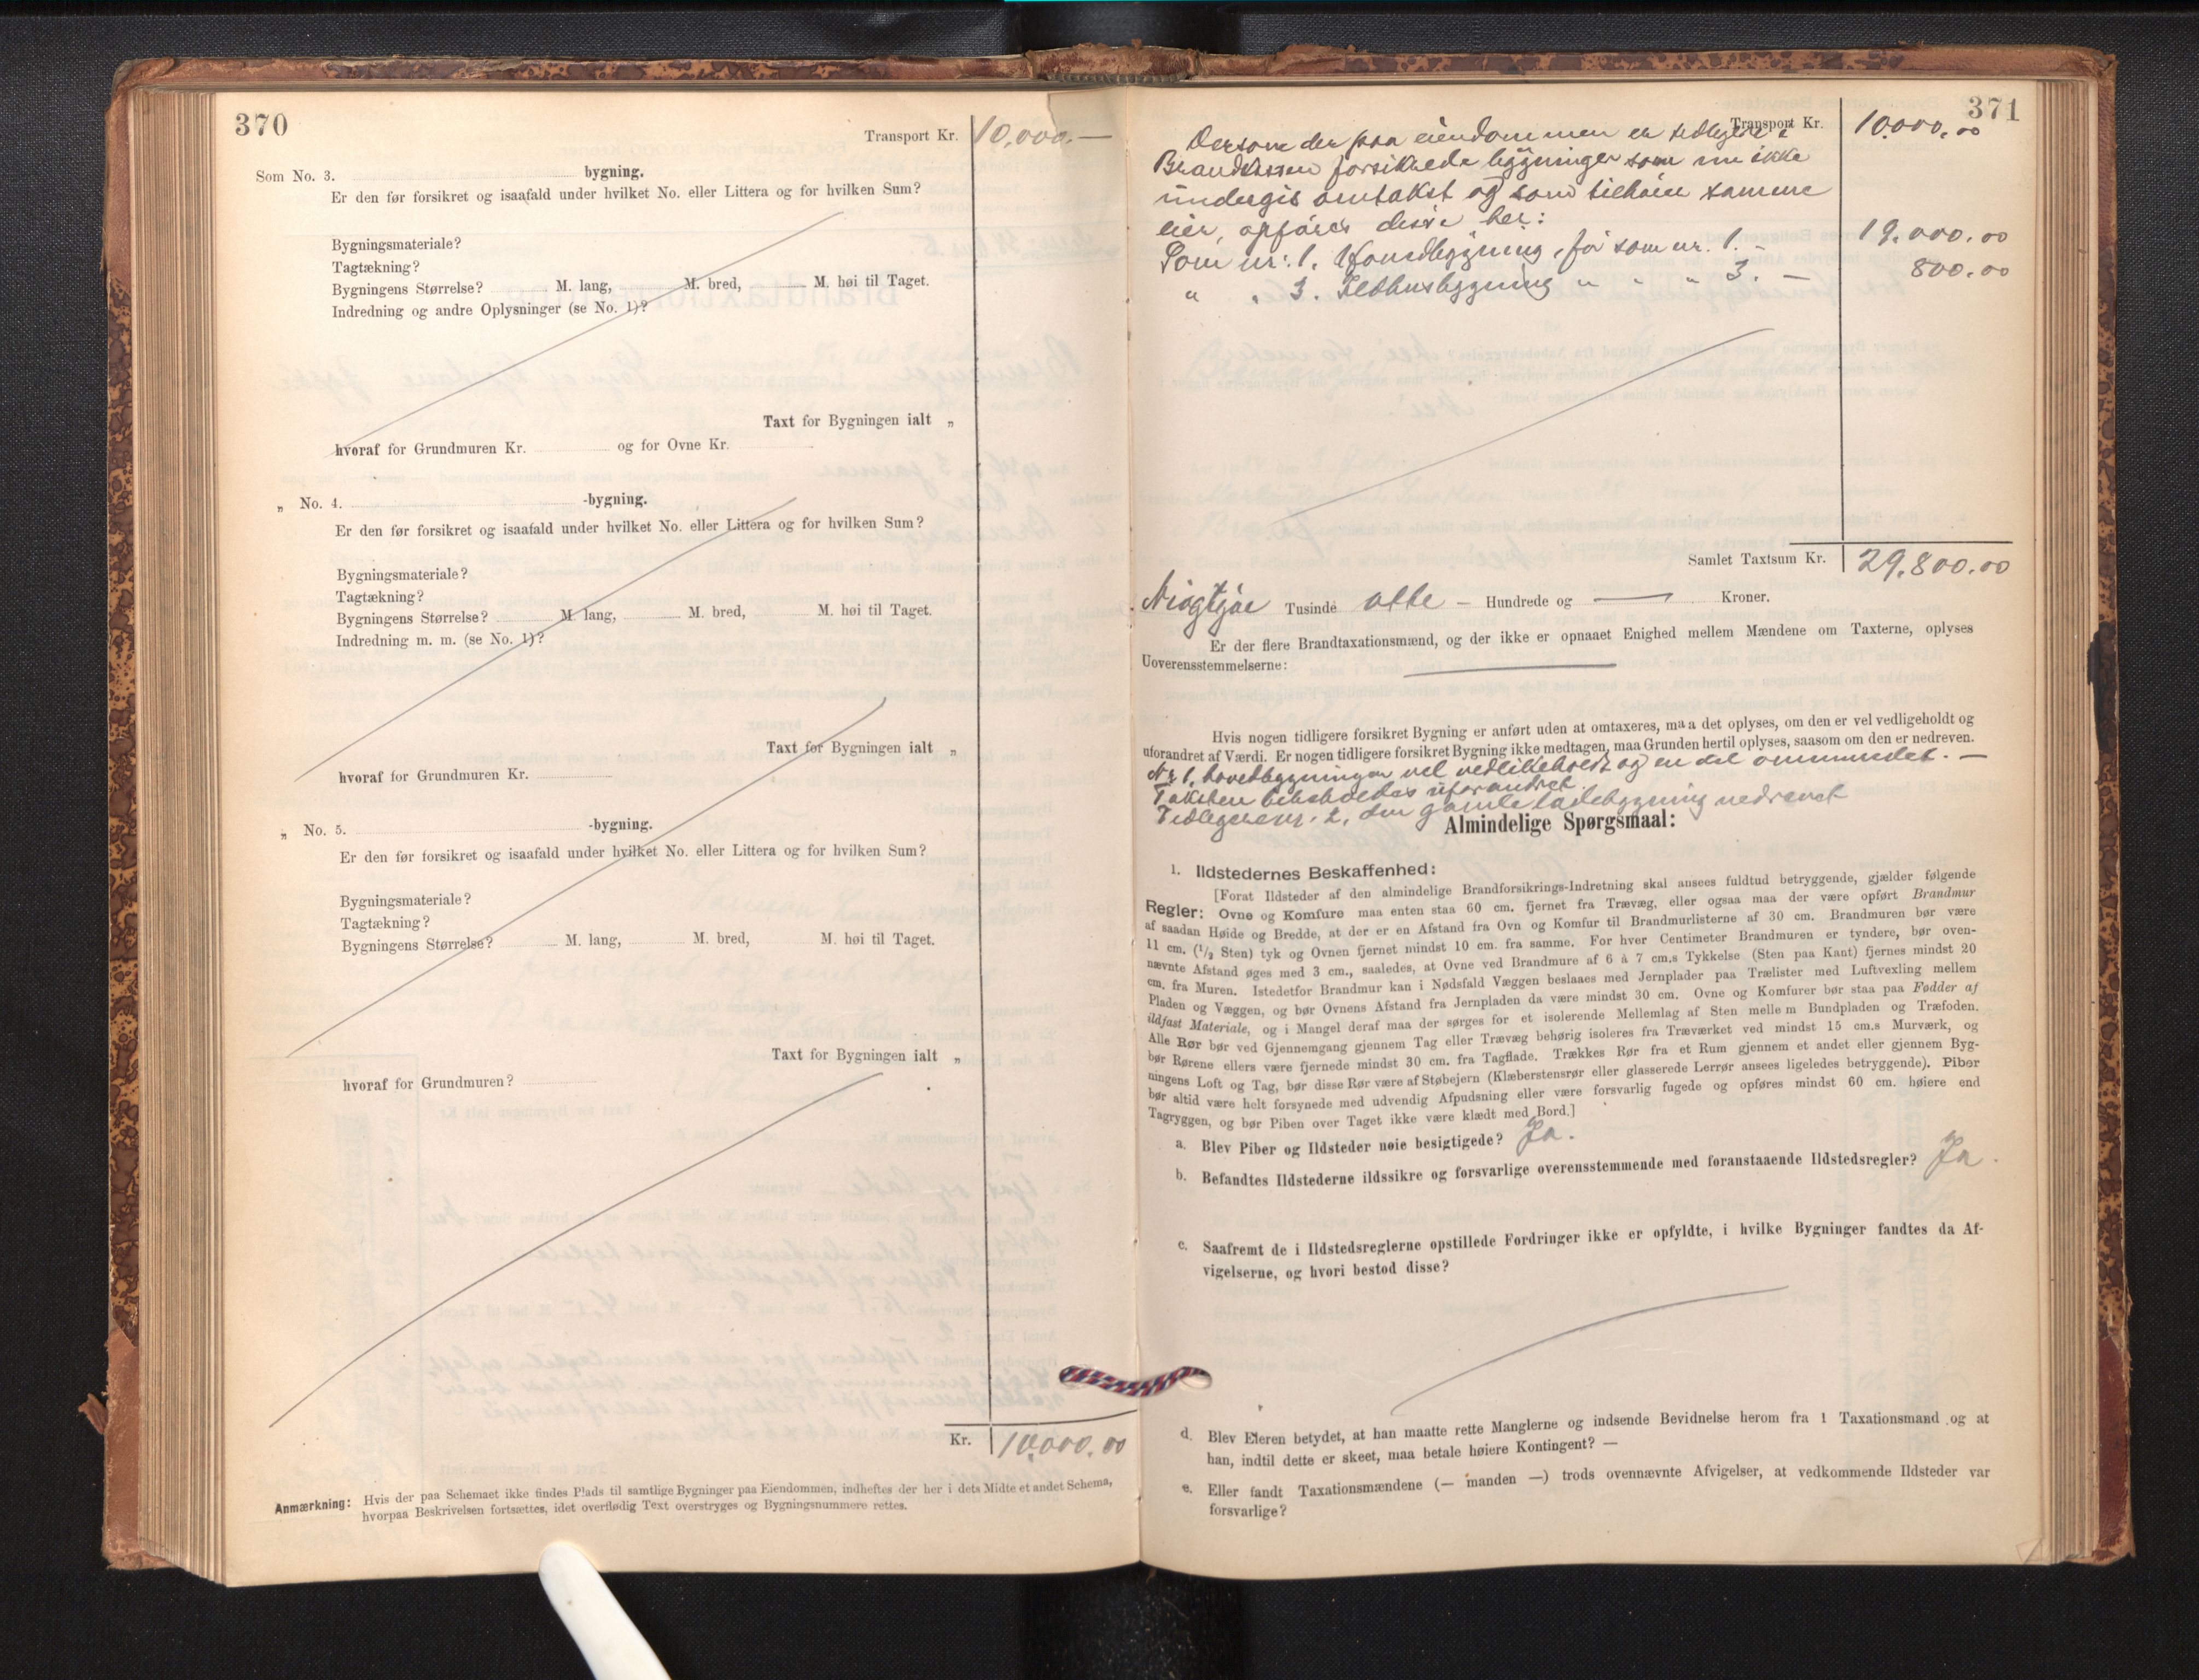 370
Transport Kr. 10,000.—
Som No. 3. bygning.
Er den før forsikret og isaafald under hvilket No. eller Littera og for hvilken Sum?
Bygningsmateriale?
Tagtækning?
Bygningens Størrelse? M. lang, M. bred, M. høi til Taget.
Indredning og andre Oplysninger (se No. 1)?
Taxt for Bygningen ialt „
hvoraf for Grundmuren Kr. og for Ovne Kr.
„ No. 4. -bygning.
Er den før forsikret og isaafald under hvilket No. eller Littera og for hvilken Sum?
Bygningsmateriale?
Tagtækning?
Bygningens Størrelse? M. lang, M. bred, M. høi til Taget.
Indredning m. m. (se No. 1)?
Taxt for Bygningen ialt „
hvoraf for Grundmuren Kr.
„ No. 5. -bygning.
Er den før forsikret og isaafald under hvilket No. eller Littera og for hvilken Sum?
Bygningsmateriale?
Tagtækning?
Bygningens Størrelse? M. lang, M. bred, M. høi til Taget.
Taxt for Bygningen ialt „
hvoraf for Grundmuren?
Kr. 10,000.00
Anmærkning: Hvis der paa Schemaet ikke findes Plads til samtlige Bygninger paa Eiendommen, indheftes der her i dets Midte et andet Schema,
hvorpaa Beskrivelsen fortsættes, idet overflødig Text overstryges og Bygningsnummere rettes.
371
Transport Kr. 10.000.00
Dersom der paa eiendommen er tidligere i
Brandkassen forsikrede bygninger som nu ikke
undergis omtakst og som tilhører samme
eier, opføres disse her:
Som nr. 1. Vaaningbygning, før som nr. 1. — 19.000.00
„ „ 3. Ildhusbygning „ „ „ 3. — 800.00
Samlet Taxtsum Kr. 29.800.00
Niogtyve Tusinde otte — Hundrede og — Kroner.
Er der flere Brandtaxationsmænd, og der ikke er opnaaet Enighed mellem Mændene om Taxterne, oplyses
Uoverensstemmelserne:
Hvis nogen tidligere forsikret Bygning er anført uden at omtaxeres, maa det oplyses, om den er vel vedligeholdt og
uforandret af Værdi. Er nogen tidligere forsikret Bygning ikke medtagen, maa Grunden hertil oplyses, saasom om den er nedreven.
Nr 1, hovedbygningen vel vedlikeholdt og en del ominnredet. —
Taksten beholdes uforandret.
Tidligere nr. 2, den gamle ladebygning nedrevet
Almindelige Spørgsmaal:
1. Ildstedernes Beskaffenhed:
[Forat Ildsteder af den almindelige Brandforsikrings-Indretning skal ansees fuldtud betryggende, gjælder følgende
Regler: Ovne og Komfure maa enten staa 60 cm. fjernet fra Trævæg, eller ogsaa maa der være opført Brandmur
af saadan Høide og Bredde, at der er en Afstand fra Ovn og Komfur til Brandmurlisterne af 30 cm. Brandmuren bør være
11 cm. (1/2 Sten) tyk og Ovnen fjernet mindst 10 cm. fra samme. For hver Centimeter Brandmuren er tyndere, bør oven-
nævnte Afstand øges med 3 cm., saaledes, at Ovne ved Brandmure af 6 à 7 cm.s Tykkelse (Sten paa Kant) fjernes mindst 20
cm. fra Muren. Istedetfor Brandmur kan i Nødsfald Væggen beslaaes med Jernplader paa Trælister med Luftvexling mellem
Pladen og Væggen, og bør Ovnens Afstand fra Jernpladen da være mindst 30 cm. Ovne og Komfurer bør staa paa Fødder af
ildfast Materiale, og i Mangel deraf maa der sørges for et isolerende Mellemlag af Sten mellem Bundpladen og Træfoden.
Alle Rør bør ved Gjennemgang gjennem Tag eller Trævæg behørig isoleres fra Træværket ved mindst 15 cm.s Murværk, og
bør Rørene ellers være fjernede mindst 30 cm. fra Tagflade. Trækkes Rør fra et Rum gjennem et andet eller gjennem Byg-
ningens Loft og Tag, bør disse Rør være af Støbejern (Klæberstensrør eller glasserede Lerrør ansees ligeledes betryggende). Piber
bør altid være helt forsynede med udvendig Afpudsning eller være forsvarlig fugede og opføres mindst 60 cm. høiere end
Tagryggen, og bør Piben over Taget ikke være klædt med Bord.]
a. Blev Piber og Ildsteder nøie besigtigede? Ja.
b. Befandtes Ildstederne ildssikre og forsvarlige overensstemmende med foranstaaende Ildstedsregler? Ja.
c. Saafremt de i Ildstedsreglerne opstillede Fordringer ikke er opfyldte, i hvilke Bygninger fandtes da Af-
vigelserne, og hvori bestod disse?
d. Blev Eieren betydet, at han maatte rette Manglerne og indsende Bevidnelse herom fra 1 Taxationsmand og at
han, indtil dette er skeet, maa betale høiere Kontingent? —
e. Eller fandt Taxationsmændene (— manden —) trods ovennævnte Afvigelser, at vedkommende Ildsteder var
forsvarlige?